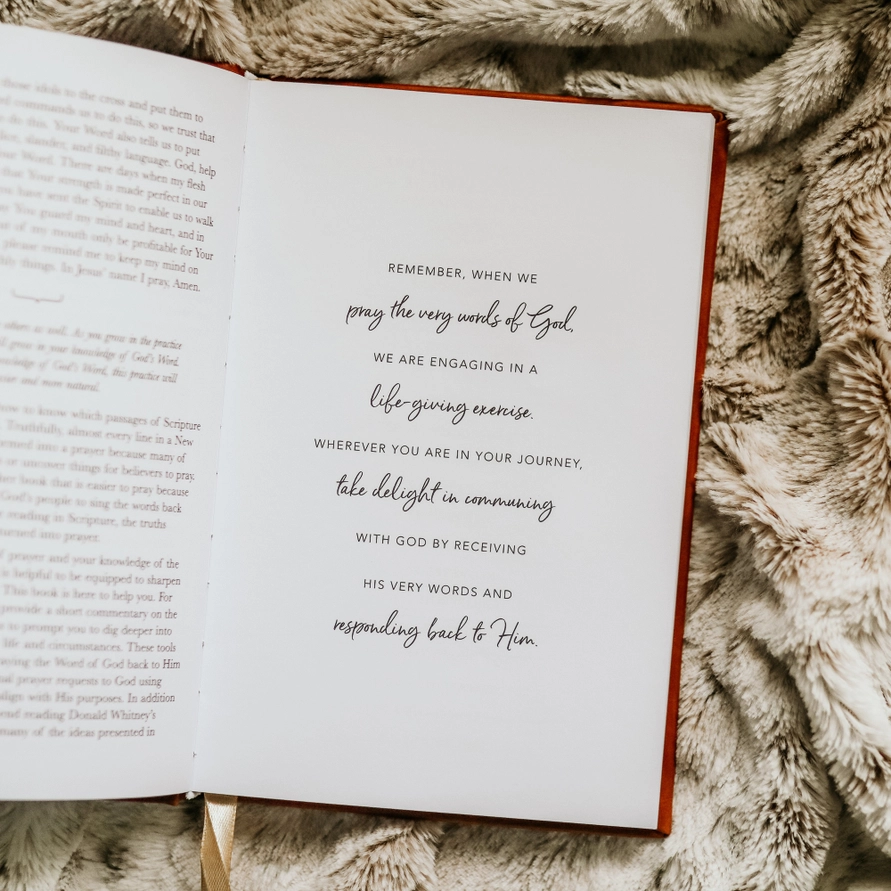 those idols to the cross and put them to
commands us to do this, so we trust that
do this. Your Word also tells us to put
slander, and filthy language. God, help
Word. There are days when my flesh
that Your strength is made perfect in our
have sent the Spirit to enable us to walk
You guard my mind and heart, and in
of my mouth only be profitable for Your
please remind me to keep my mind on
things. In Jesus' name I pray, Amen.
others as well. As you grow in the practice
grow in your knowledge of God's Word.
knowledge of God's Word, this practice will
and more natural.
how to know which passages of Scripture
Truthfully, almost every line in a New
into a prayer because many of
or uncover things for believers to pray.
book that is easier to pray because
God's people to sing the words back
reading in Scripture, the truths
turned into prayer.
prayer and your knowledge of the
is helpful to be equipped to sharpen
This book is here to help you. For
provide a short commentary on the
to prompt you to dig deeper into
life and circumstances. These tools
praying the Word of God back to Him
prayer requests to God using
align with His purposes. In addition
reading Donald Whitney's
many of the ideas presented in
REMEMBER, WHEN WE
pray the very words of God,
WE ARE ENGAGING IN A
life-giving exercise.
WHEREVER YOU ARE IN YOUR JOURNEY,
take delight in communing
WITH GOD BY RECEIVING
HIS VERY WORDS AND
responding back to Him.